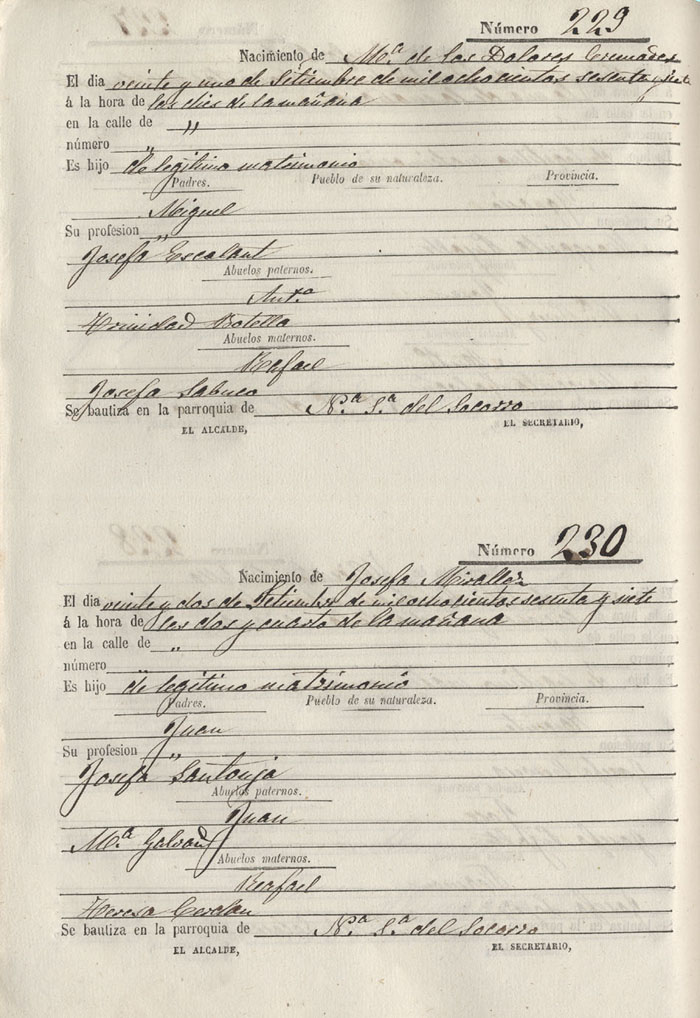 Número 229
Nacimiento de Mª. de los Dolores Cremades
El dia veinte y uno de Setiembre de mil ochocientos sesenta y siete
á la hora de las dies de la mañana
en la calle de "
número "
Es hijo de legítimo matrimonio
Padres. Pueblo de su naturaleza. Provincia.
Miguel
Su profesion "
Josefa Escolant
Abuelos paternos.
Antº
Trinidad Botella
Abuelos maternos.
Rafael
Josefa Sabuco
Se bautiza en la parroquia de Nª. Sª. del Socorro
EL ALCALDE, EL SECRETARIO,
Número 230
Nacimiento de Josefa Miralles
El dia veinte y dos de Setiembre de mil ochocientos sesenta y siete
á la hora de las dos y cuarto de la mañana
en la calle de "
número "
Es hijo de legítimo matrimonio
Padres. Pueblo de su naturaleza. Provincia.
Juan
Su profesion "
Josefa Santonja
Abuelos paternos.
Juan
Mª. Galvañ
Abuelos maternos.
Rafael
Teresa Cerdan
Se bautiza en la parroquia de Nª. Sª. del Socorro
EL ALCALDE, EL SECRETARIO,